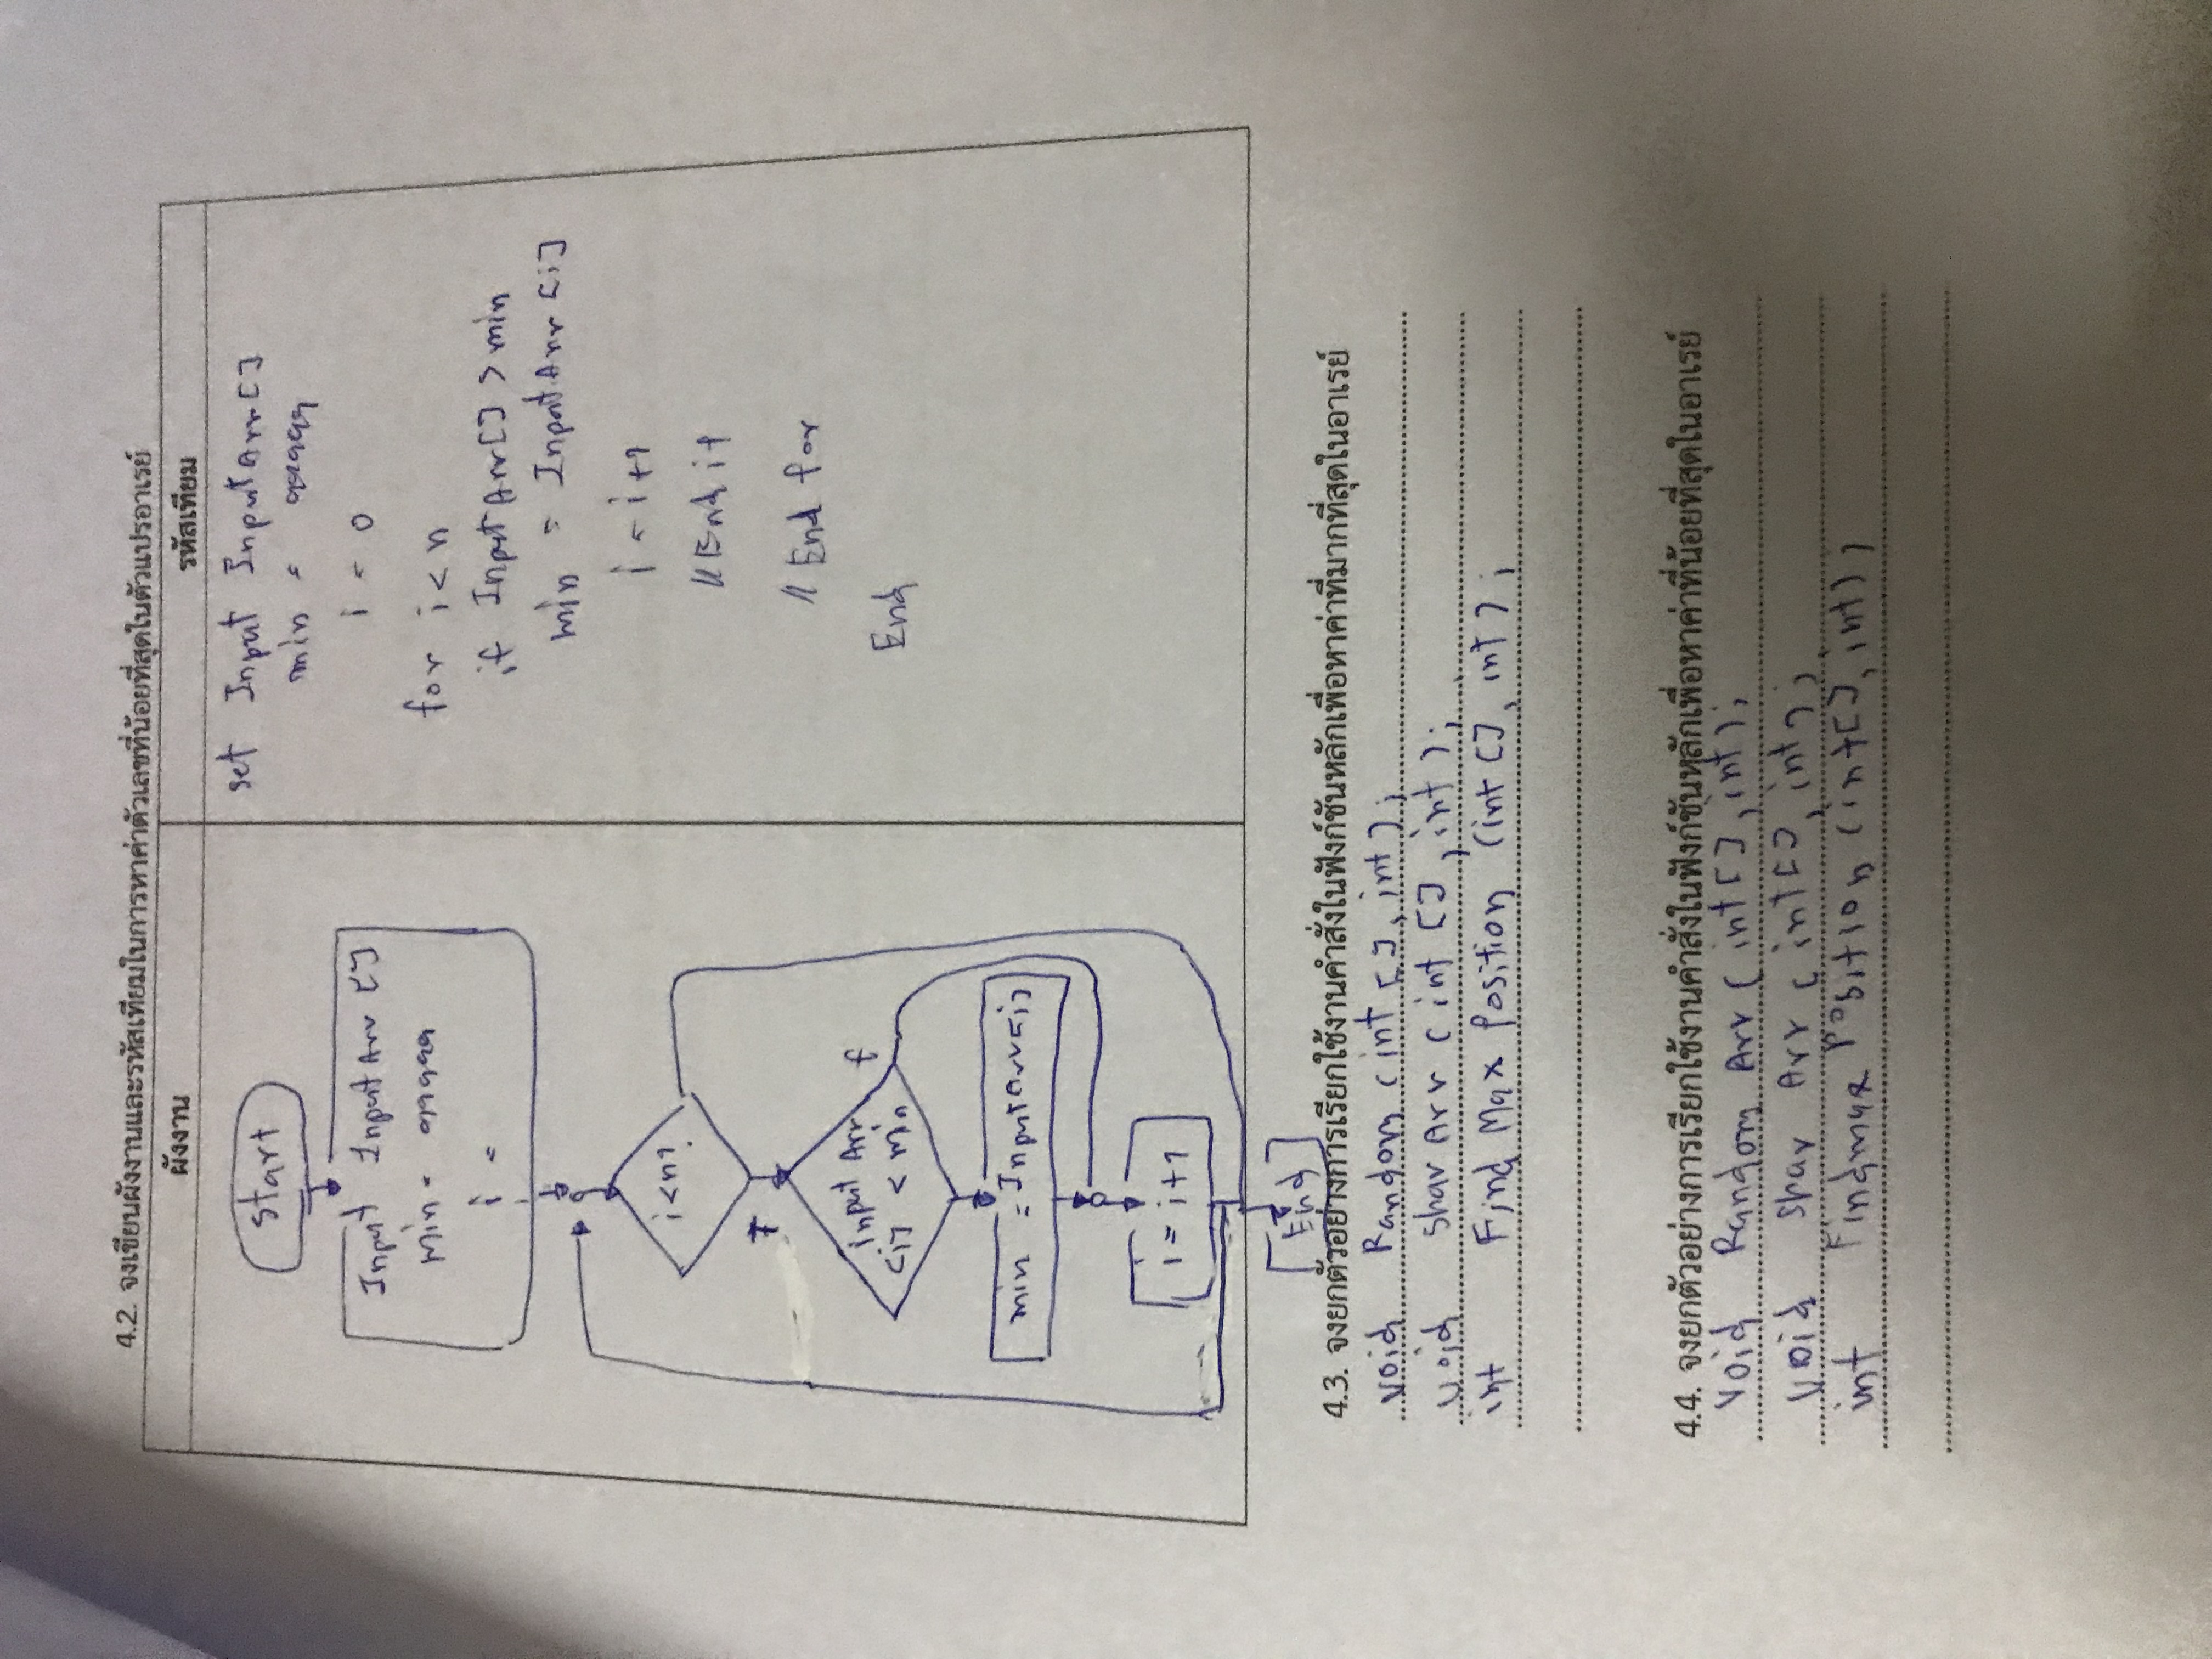 4.2. จงเขียนผังงานและรหัสเทียมในการหาค่าตัวเลขที่น้อยที่สุดในตัวแปรอาเรย์
ผังงาน
Start
Input InputArr []
min = 99999
i =
i<n?
T
input Arr
[i] < min
f
min = InputArr[i]
i = i+1
End
รหัสเทียม
set Input InputArr[]
min = 99999
i = 0
for i<n
if InputArr[] > min
min = InputArr[i]
i = i+1
// End if
// End for
End
4.3. จงยกตัวอย่างการเรียกใช้งานคำสั่งในฟังก์ชันหลักเพื่อหาค่าที่มากที่สุดในอาเรย์
void Random (int [], int);
void Arr (int [], int);
int Find Max Position (int [], int);
4.4. จงยกตัวอย่างการเรียกใช้งานคำสั่งในฟังก์ชันหลักเพื่อหาค่าที่น้อยที่สุดในอาเรย์
void Random Arr (int[], int);
void Arr (int[], int);
int Findmax Position (int[], int);